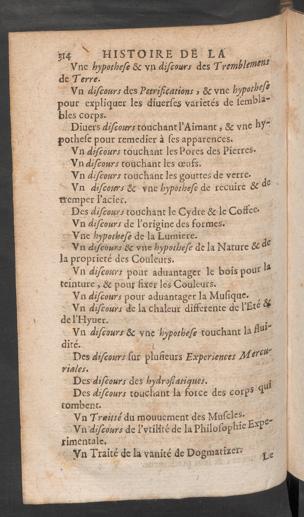 314 HISTOIRE DE LA
Vne hypothese & vn discours des Tremblemens
de Terre.
Vn discours des Petrifications, & vne hypothese
pour expliquer les diuerses varietés de sembla-
bles corps.
Diuers discours touchant l'Aimant, & vne hy-
pothese pour remedier à ses apparences.
Vn discours touchant les Pores des Pierres.
Vn discours touchant les œufs.
Vn discours touchant les gouttes de verre.
Vn discours & vne hypothese de recuire & de
tremper l'acier.
Des discours touchant le Cydre & le Coffee.
Vn discours de l'origine des formes.
Vne hypothese de la Lumiere.
Vn discours & vne hypothese de la Nature & de
la proprieté des Couleurs.
Vn discours pour aduantager le bois pour la
teinture, & pour fixer les Couleurs.
Vn discours pour aduantager la Musique.
Vn discours de la chaleur differente de l'Eté &
de l'Hyuer.
Vn discours & vne hypothese touchant la flui-
dité.
Des discours sur plusieurs Experiences Mercu-
riales.
Des discours des hydrostatiques.
Des discours touchant la force des corps qui
tombent.
Vn Traitté du mouuement des Muscles.
Vn discours de l'vtilité de la Philosophie Expe-
rimentale.
Vn Traité de la vanité de Dogmatizer.
Le